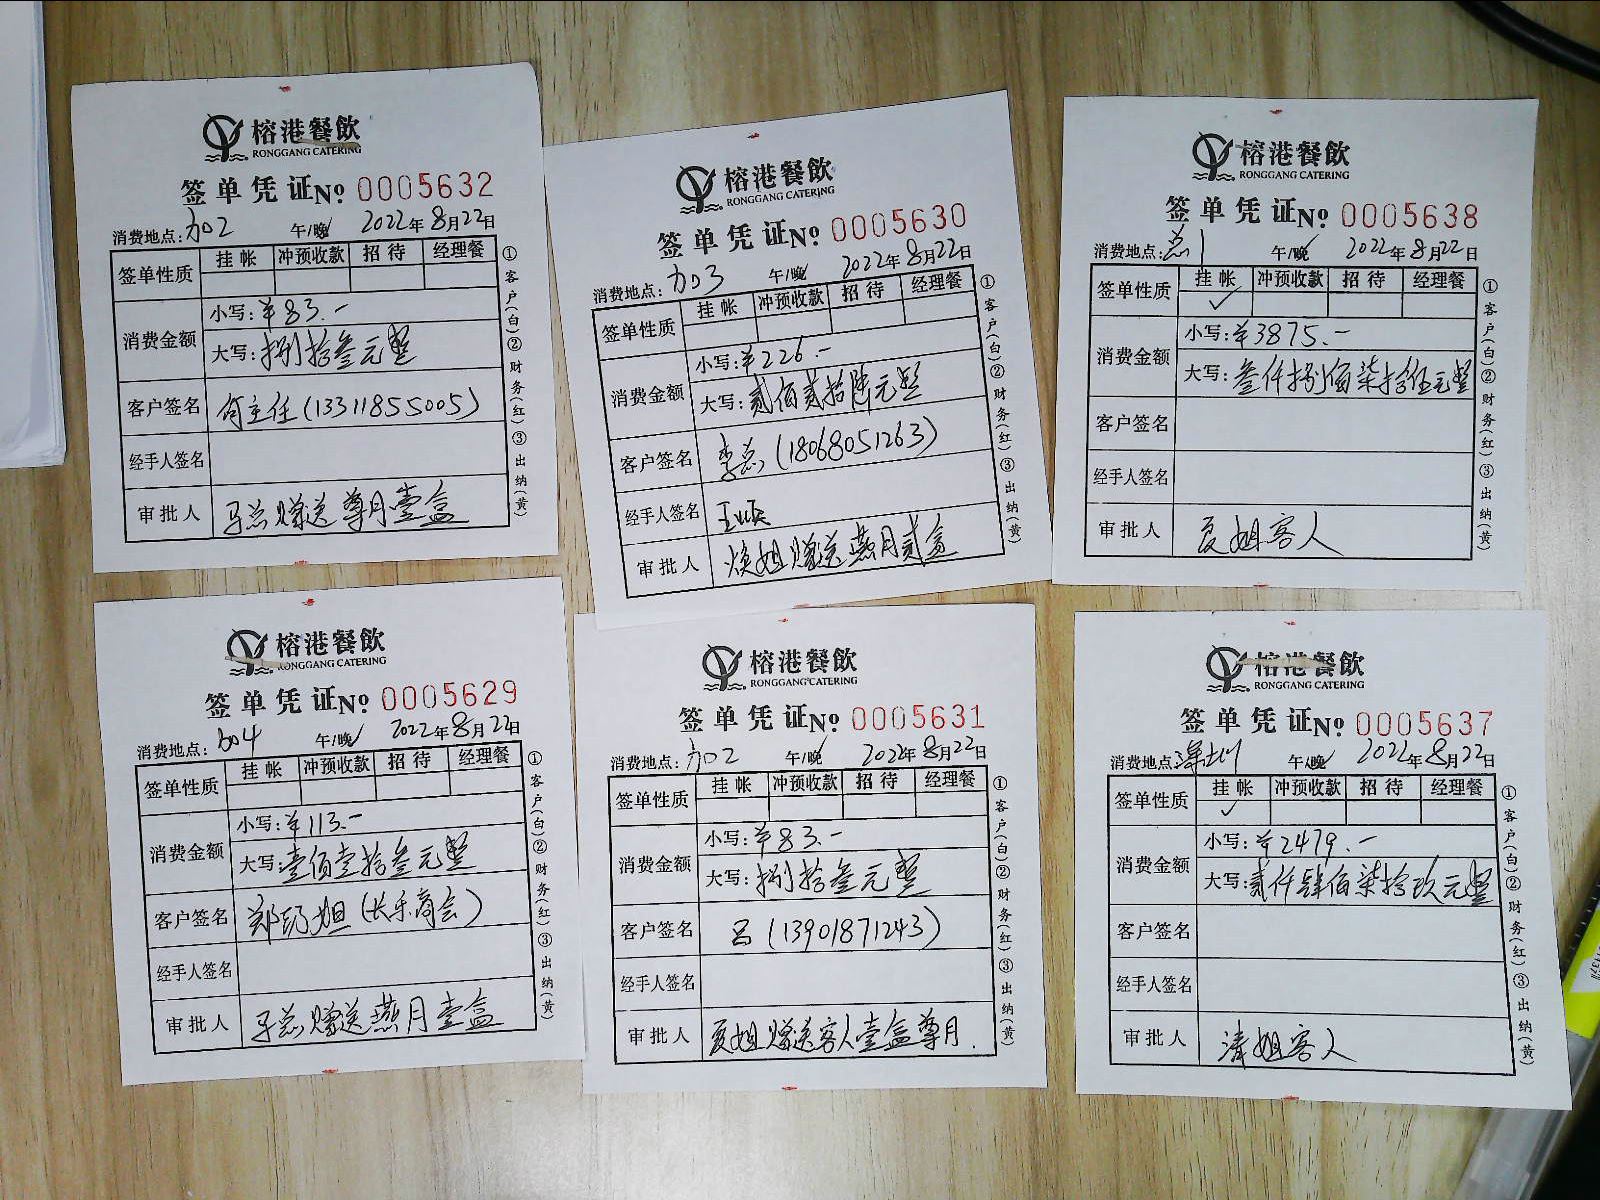 榕港餐飲
RONGGANG CATERING
签单凭证No 0005632
消费地点:加02 午/晚✓ 2022年8月22日
签单性质 挂帐 冲预收款 招待 经理餐
消费金额 小写:¥83.-
大写:捌拾叁元整
客户签名 何主任(13311855005)
经手人签名
审批人 马总赠送尊月壹盒
①客户(白)②财务(红)③出纳(黄)
榕港餐飲
RONGGANG CATERING
签单凭证No 0005630
消费地点:加03 午/晚✓ 2022年8月22日
签单性质 挂帐 冲预收款 招待 经理餐
消费金额 小写:¥226.-
大写:贰佰贰拾陆元整
客户签名 李总(18068051263)
经手人签名
审批人 焕姐赠送燕月贰盒
①客户(白)②财务(红)③出纳(黄)
榕港餐飲
RONGGANG CATERING
签单凭证No 0005638
消费地点:点1 午/晚✓ 2022年8月22日
签单性质 挂帐 冲预收款 招待 经理餐
✓
消费金额 小写:¥3875.-
大写:叁仟捌佰柒拾伍元整
客户签名
经手人签名
审批人 夏姐客人
①客户(白)②财务(红)③出纳(黄)
榕港餐飲
RONGGANG CATERING
签单凭证No 0005629
消费地点:604 午/晚✓ 2022年8月22日
签单性质 挂帐 冲预收款 招待 经理餐
消费金额 小写:¥113.-
大写:壹佰壹拾叁元整
客户签名 郑 姐(长乐商会)
经手人签名
审批人 马总赠送燕月壹盒
①客户(白)②财务(红)③出纳(黄)
榕港餐飲
RONGGANG CATERING
签单凭证No 0005631
消费地点:加02 午/晚✓ 2022年8月22日
签单性质 挂帐 冲预收款 招待 经理餐
消费金额 小写:¥83.-
大写:捌拾叁元整
客户签名 吕(13901871243)
经手人签名
审批人 夏姐赠送客人壹盒尊月.
①客户(白)②财务(红)③出纳(黄)
榕港餐飲
RONGGANG CATERING
签单凭证No 0005637
消费地点: 午/晚✓ 2022年8月22日
签单性质 挂帐 冲预收款 招待 经理餐
✓
消费金额 小写:¥2479.-
大写:贰仟肆佰柒拾玖元整
客户签名
经手人签名
审批人 清姐客人
①客户(白)②财务(红)③出纳(黄)